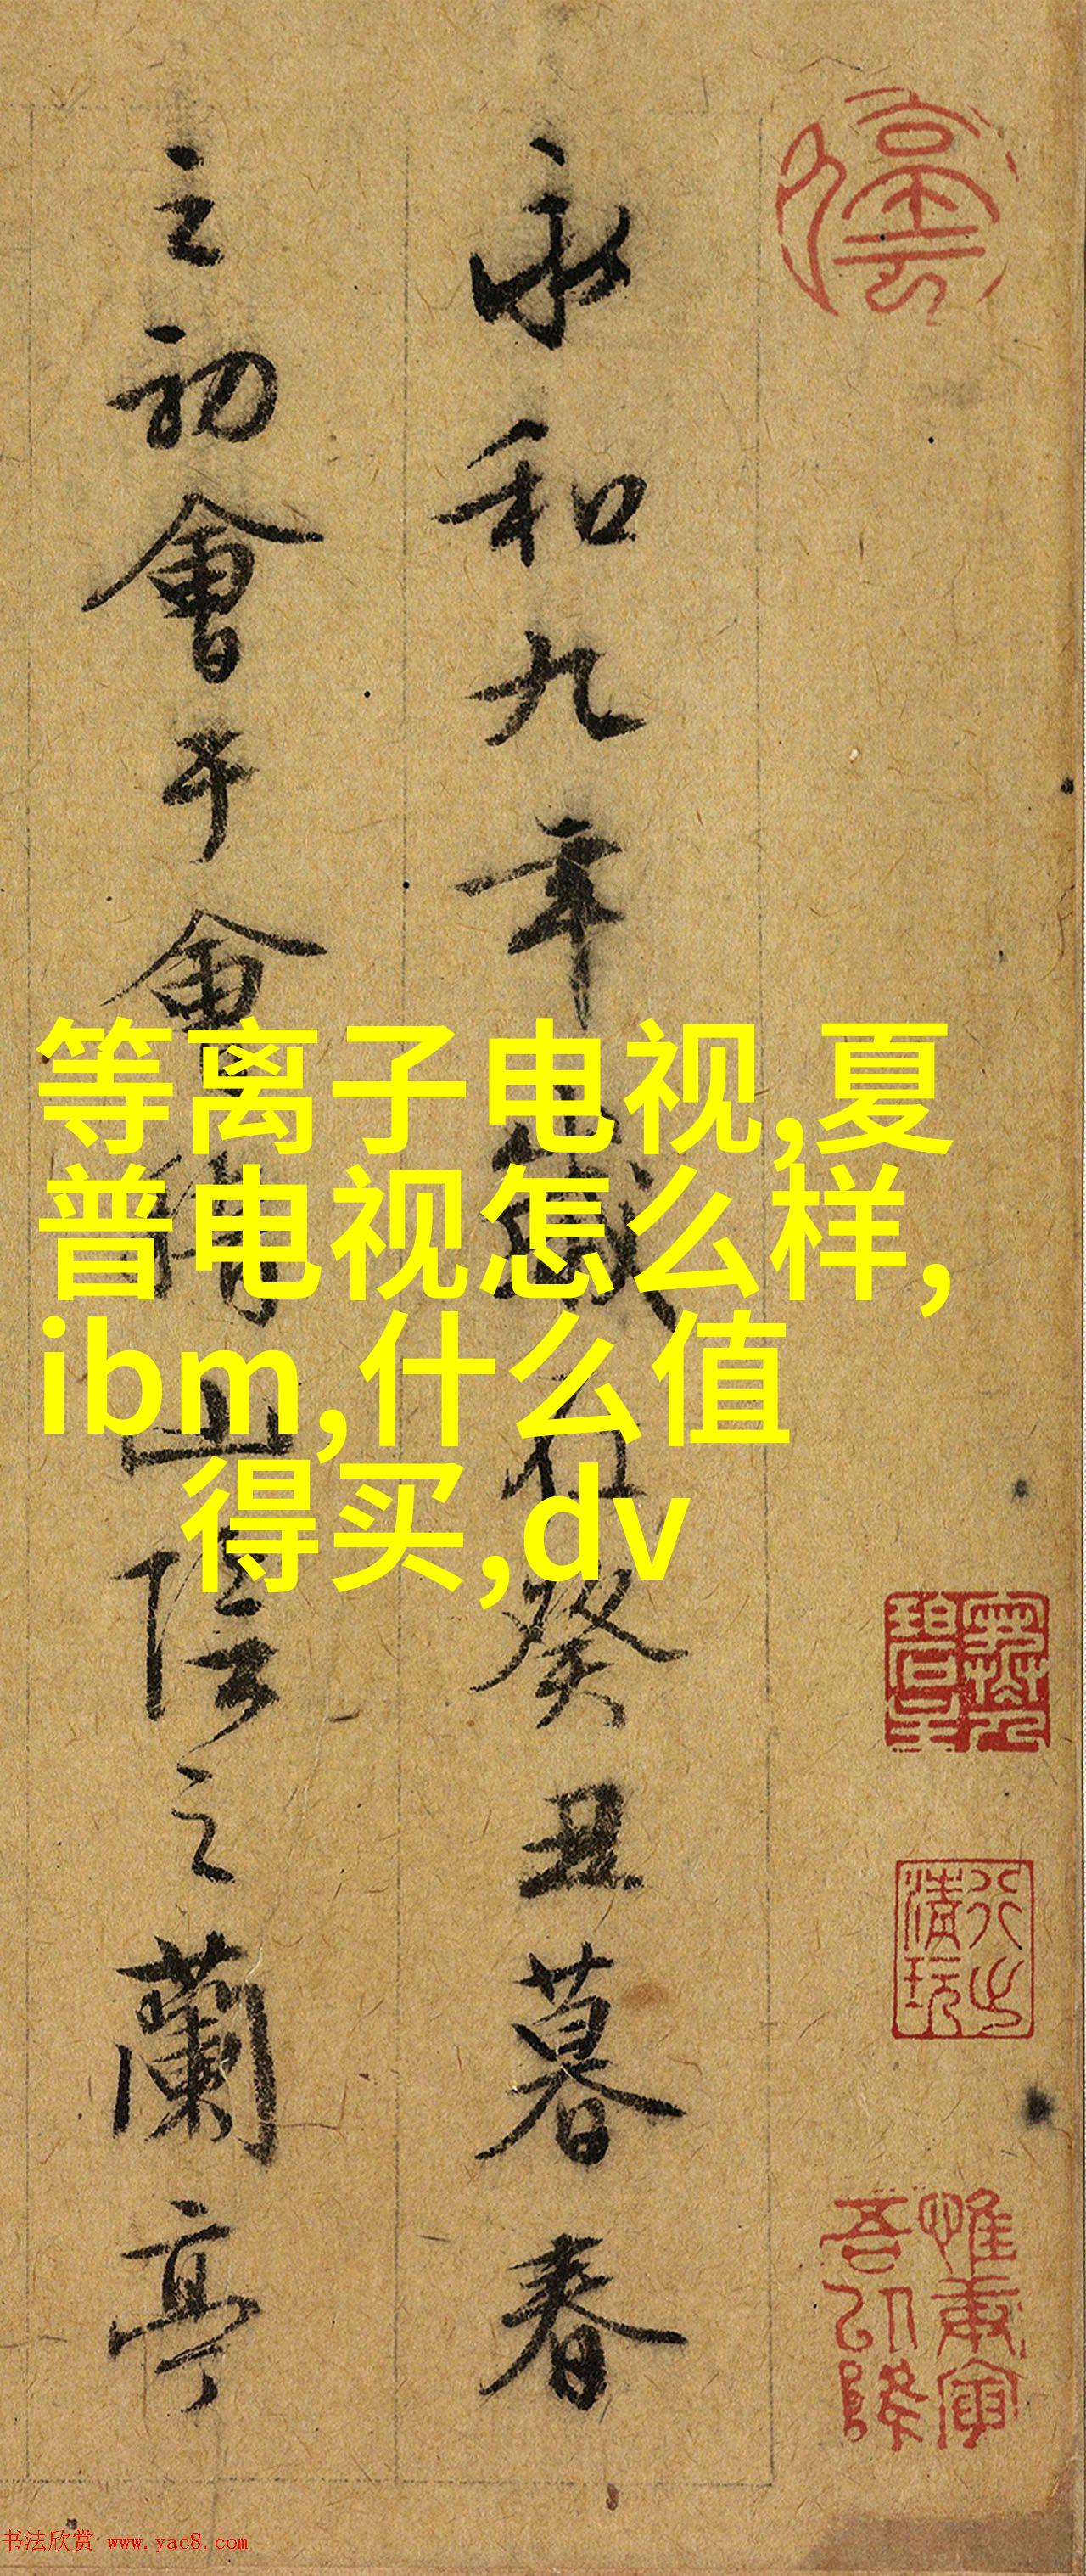 永和九年歲在癸丑暮春
之初會于會稽山陰之蘭亭
等离子电视,夏
普电视怎么样,
ibm,什么值
得买,dv
书法欣赏 www.yac8.com